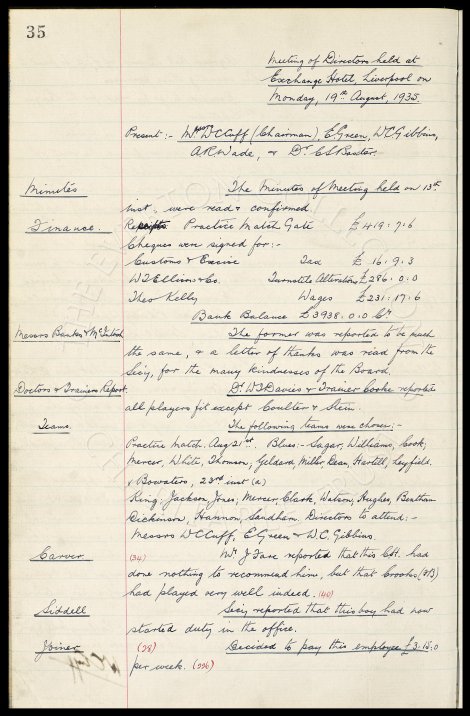 35
Meeting of Directors held at
Exchange Hotel, Liverpool on
Monday, 19th August, 1935.
Present:- Messrs W C Cuff (Chairman), E. Green, W C Gibbins,
A R Wade, & Dr C S Baxter.
Minutes The Minutes of Meeting held on 13th
inst, were read & confirmed.
Finance. Receipts Practice Match Gate £419:7:6
Cheques were signed for:-
Customs & Excise Tax £ 16:9:3
W J Ellison & Co. Turnstile Alteration £286:0:0
Theo Kelly Wages £231:17:6
Bank Balance £3938:0:0 Cr
Messrs Banks & McIntosh The former was reported to be much
the same, & a letter of thanks was read from the
for the many kindnesses of the Board.
Doctors & Trainers Report. Dr W J Davies & Trainer Cooke reported
all players fit except Coulter & Stein.
Teams The following teams were chosen:-
Practice Match. Aug 21st. Blues:- Sagar, Williams, Cook,
Mercer, White, Thomson, Geldard, Miller, Dean, Hartill, Leyfield.
v Bowaters, 23rd inst (a)
King: Jackson, Jones, Mercer, Clark, Watson, Hughes, Bentham
Dickinson, Hannon, Sandham. Directors to attend:-
Messrs W C Cuff, E Green & W C Gibbins.
Carver (34) Mr J Fare reported that this CH. had
done nothing to recommend him, but that Crooks
had played very well indeed. (40)
Liddell Secy reported that this boy had now
started duty in the office.
Joiner (28) Decided to pay this employee £3:15:0
per week. (226)
W C Cuff